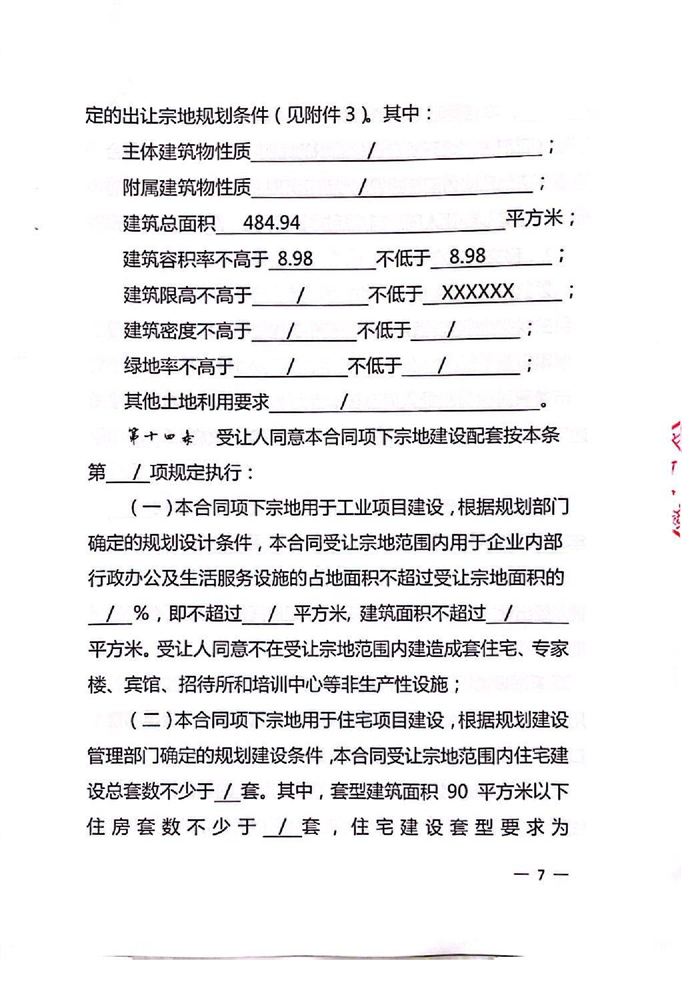 定的出让宗地规划条件（见附件3）。其中：
主体建筑物性质 / ；
附属建筑物性质 / ；
建筑总面积 484.94 平方米；
建筑容积率不高于 8.98 不低于 8.98 ；
建筑限高不高于 / 不低于 XXXXXX ；
建筑密度不高于 / 不低于 / ；
绿地率不高于 / 不低于 / ；
其他土地利用要求 / 。
第十四条 受让人同意本合同项下宗地建设配套按本条
第 / 项规定执行：
（一）本合同项下宗地用于工业项目建设，根据规划部门
确定的规划设计条件，本合同受让宗地范围内用于企业内部
行政办公及生活服务设施的占地面积不超过受让宗地面积的
/ %，即不超过 / 平方米，建筑面积不超过 /
平方米。受让人同意不在受让宗地范围内建造成套住宅、专家
楼、宾馆、招待所和培训中心等非生产性设施；
（二）本合同项下宗地用于住宅项目建设，根据规划建设
管理部门确定的规划建设条件，本合同受让宗地范围内住宅建
设总套数不少于 / 套。其中，套型建筑面积 90 平方米以下
住房套数不少于 / 套，住宅建设套型要求为
— 7 —